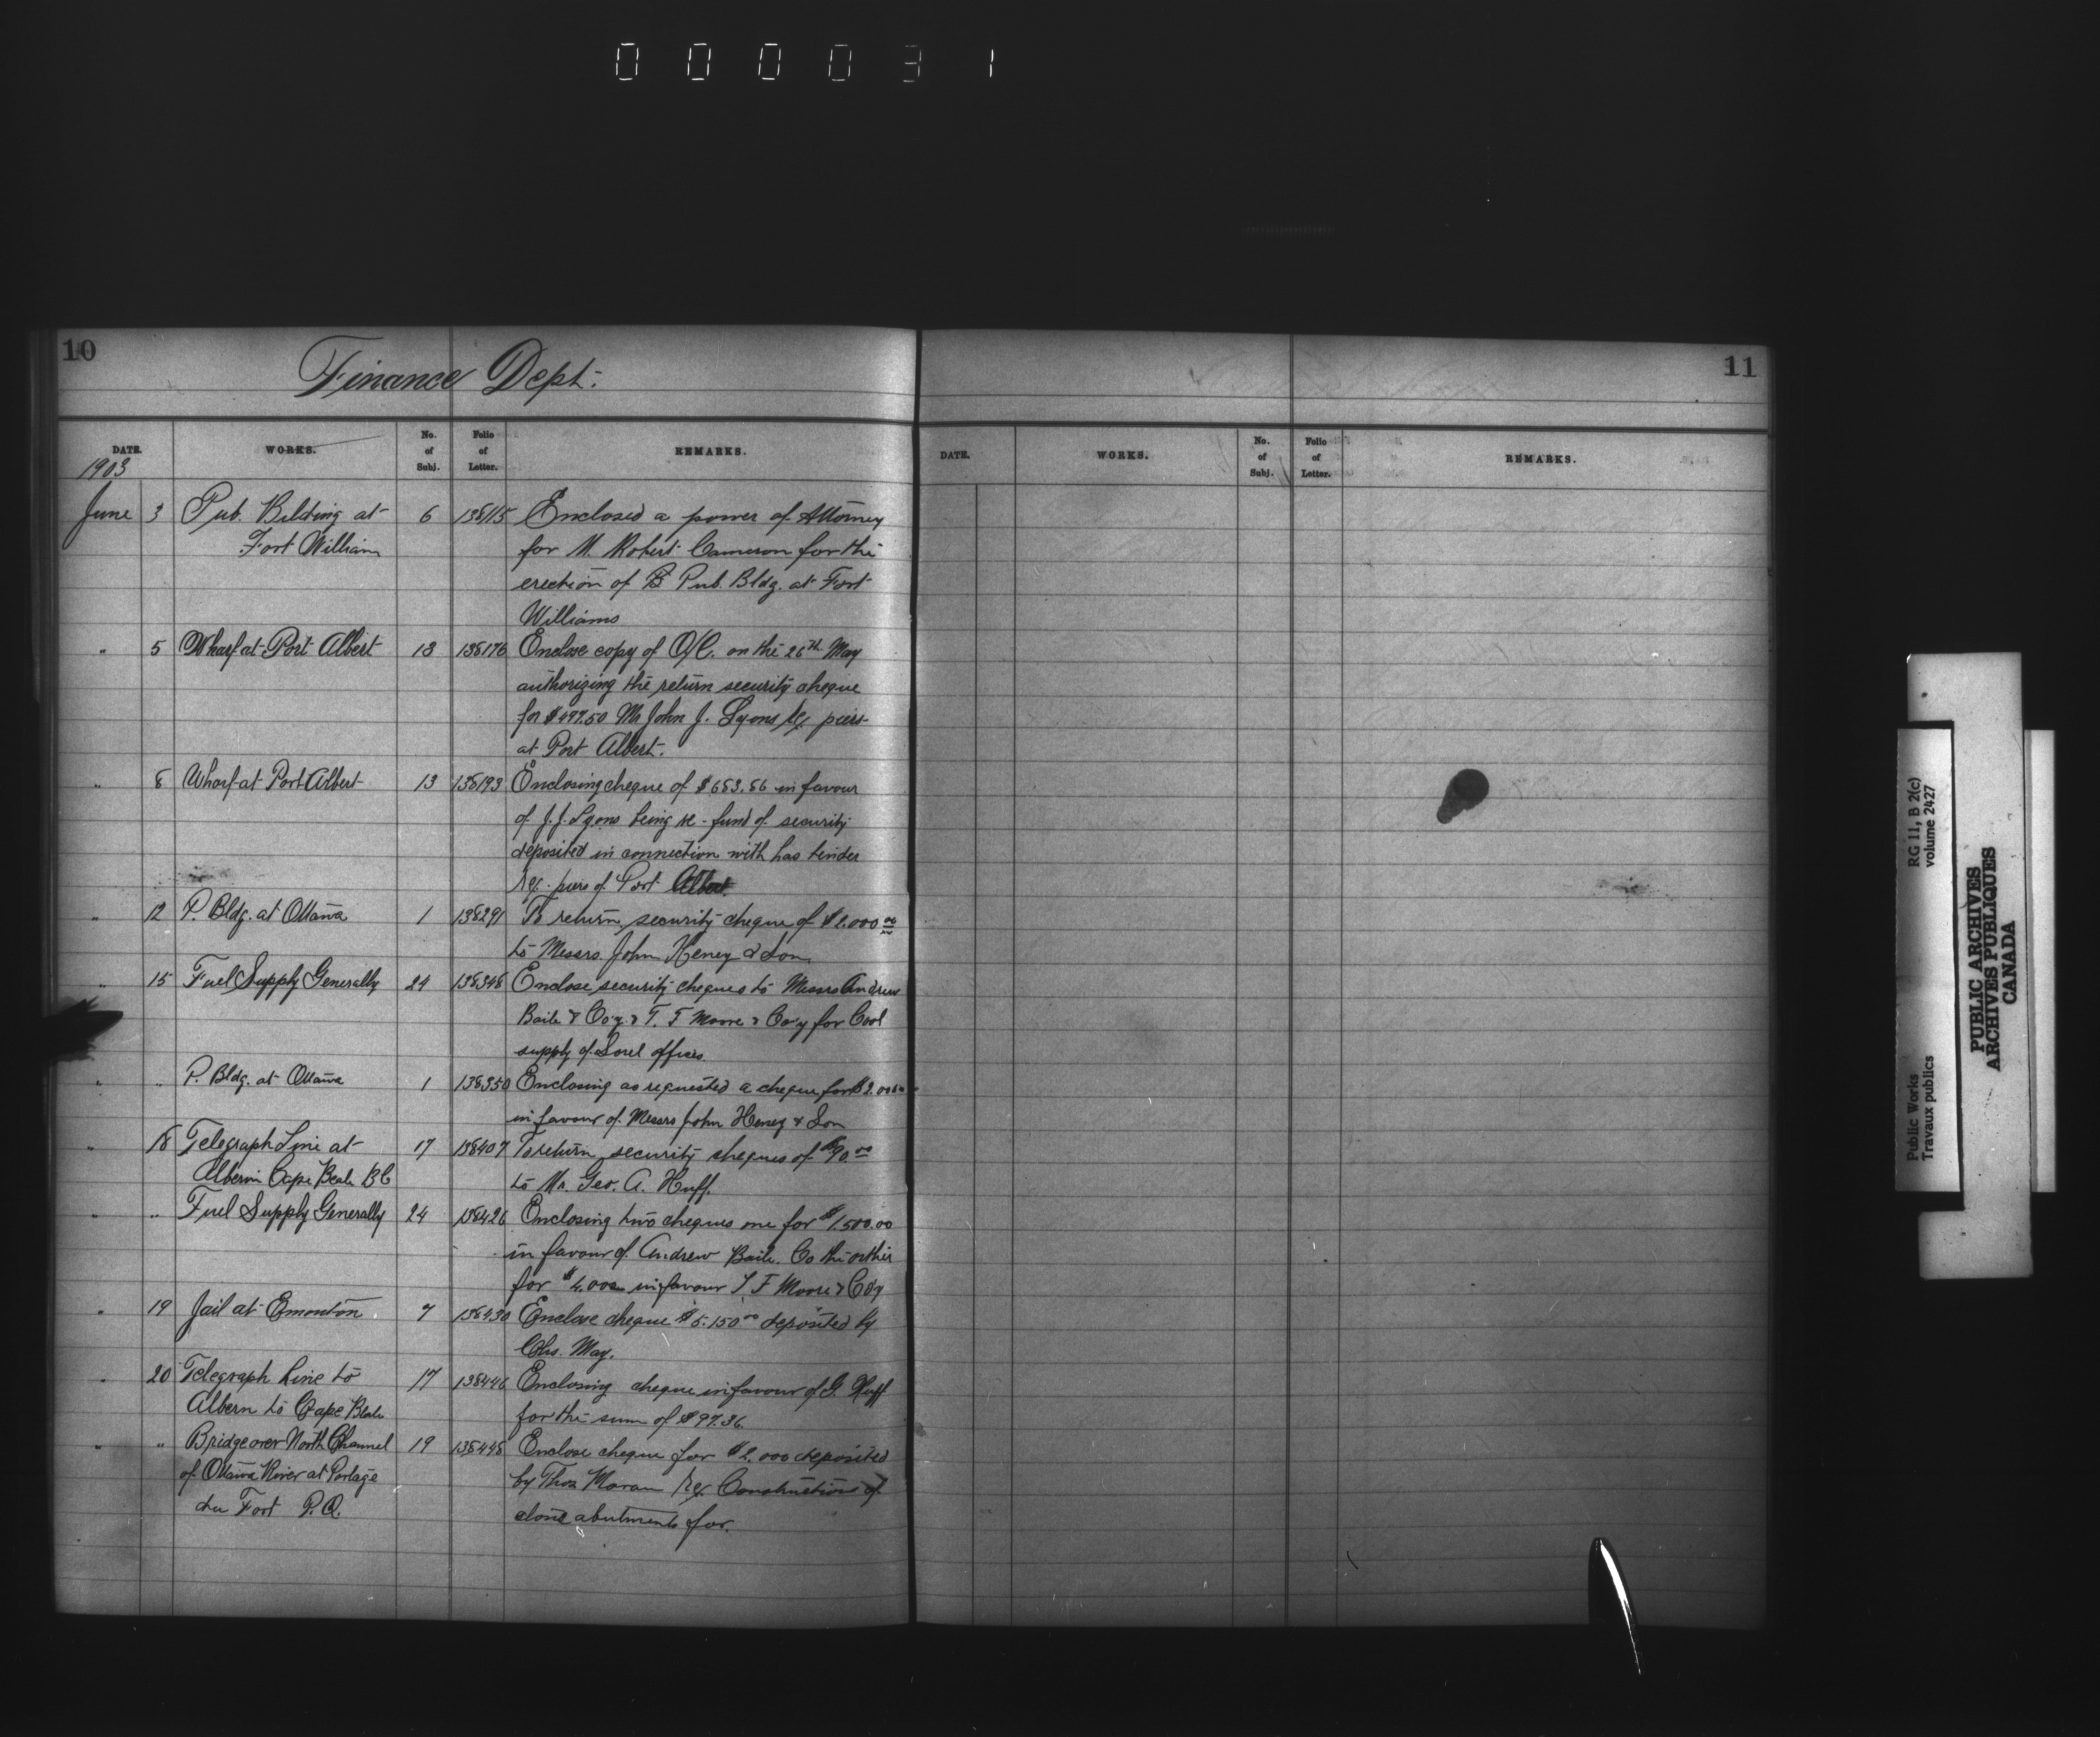 000031
10
Finance Dept.
DATE.
WORKS.
No. of Subj.
Folio of Letter.
REMARKS.
1903
June 3 Pub. Bilding at 6 138115 Enclosed a power of Attorney
Fort William for M. Robert Cameron for the
erection of Pub. Bldg. at Fort
Williams
" 5 Wharf at Port Albert 13 138176 Enclose copy of O/C. on the 26th May
authorizing the return security cheque
for $497.50 Mr John J. Lyons re piers
at Port Albert.
" 8 Wharf at Port Albert 13 138193 Enclosing cheque of $683.86 in favour
of J.J. Lyons being re-fund of security
deposited in connection with has tender
re. piers of Port Albert.
" 12 P. Bldg. at Ottawa 1 138291 To return security cheque of $2.000 00
to Messrs. John Heney & Son
" 15 Fuel Supply Generally 24 138348 Enclose security cheques to Messrs Andrew
Baile & Co'y & T. F Moore & Co'y for Cool
supply of Sorel offices
" " P. Bldg. at Ottawa 1 138350 Enclosing as requested a cheque for $2.000
in favour of Messrs John Heney & Son
" 18 Telegraph Line at 17 138407 To return security cheques of $90.00
Alberni Cape Beale B C to Mr. Geo. A. Huff.
" " Fuel Supply Generally 24 138426 Enclosing two cheques one for $1.500.00
in favour of Andrew Baile. Co the orther
for in favour T. F Moore & Co'y
" 19 Jail at Emonton 7 138430 Enclose cheque $5.150 00 deposited by
Chs. May.
" 20 Telegraph Line to 17 138446 Enclosing cheque in favour of G. Huff
Albern to Cape Beale for the sum of $97.36
" " Bridge over North Channel 19 138448 Enclose cheque for $2.000 deposited
of Ottawa River at Portage by Thos Moran re Constructions of
du Fort P.Q. abutments for.
11
DATE.
WORKS.
No. of Subj.
Folio of Letter.
REMARKS.
Public Works RG 11, B 2(c)
Travaux publics volume 2427
PUBLIC ARCHIVES
ARCHIVES PUBLIQUES
CANADA